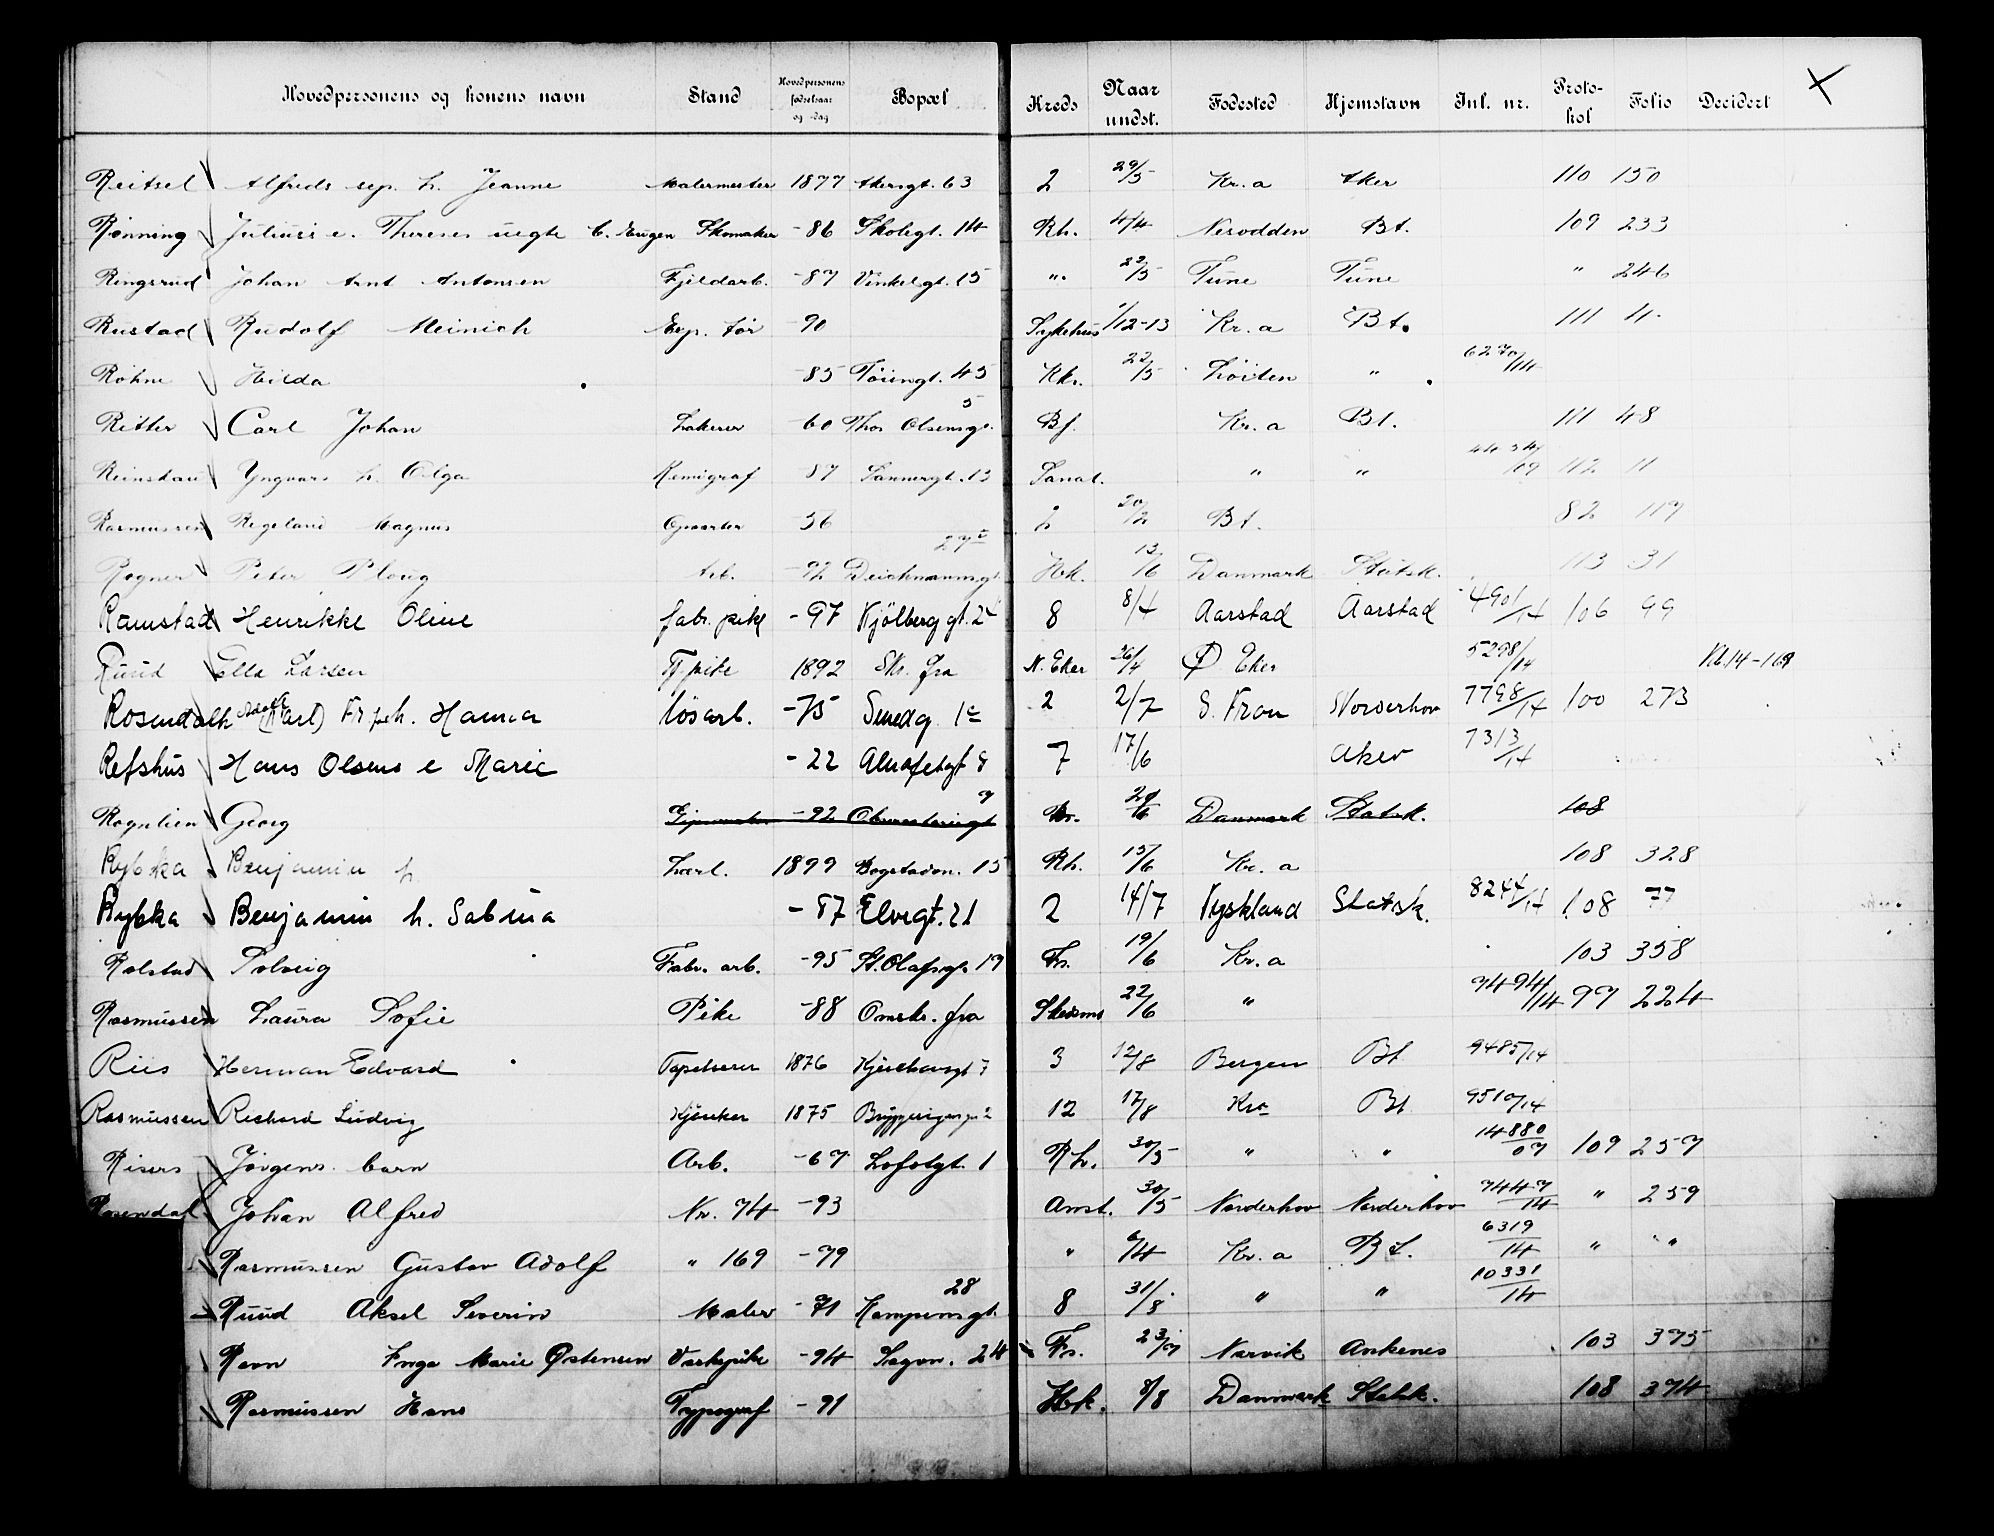 Hovedpersonens og konens navn Stand Hovedpersonens fødselsaar og -dag Bopæl Kreds Naar undst. Fødested Hjemstavn Inl. nr. Protokol Folio Decidert
Reitsel Alfreds sep. h. Jeanne Malermester 1877 Akersgt. 63 2 29/5 Kr.a Aker 110 150
Rønning Juliuss e. Thereses uegte b. Eugen Skomaker -86 Skolegt. 14 Rh. 4/4 Nesodden Bt. 109 233
Ringsrud Johan Arnt Antonsen Fjeldarb. -87 Vinkelgt. 15 " 22/5 Tune Tune " 246
Rustad Rudolf Meinich Exp. tør -90 Sykehus 1/12-13 Kr.a Bt. 111 4
Røhne Hilda -85 Tøiengt. 45 Kk. 22/5 Løiten " 6270/14
Ritter Carl Johan Lakerer -60 Thos Olsensgt. 5 Bf. Kr.a Bt. 111 48
Reinskau Yngvars h. Olga Kemigraf 87 Sannergt. 13 Sanat. " " /09 112 11
Rasmussen Regeland Magnus -56 20/2 Bt. 82 119
Rogner Peter Ploug Arb. -92 Deichmannsgt. 27 Hk. 13/6 Danmark Statsk. 113 31
Ramstad Henrikke Oline fabr. pike -97 Kjölberggt. 24 8 8/4 Aarstad Aarstad 4901/14 106 99
Ruud Ella Larsen Tj. pike 1892 Sk. fra N. Eker 26/4 Ø Eker 5298/14 Kb.14-169
Rosendahl Adolf (Karl) Fr. h. Hanna løsarb. -75 Smedg. 1c 2 2/7 S. Fron Norderhov 7798/14 100 273
Refshus Hans Olsens e Marie -22 Almefetgt 8 7 17/6 Aker 7313/14
Rognlien Georg -92 Observatoriegt 7 20/6 Danmark Statsk. 108
Rybka Benjamin h. Lærl. 1899 Bogstadvn. 15 Rh. 15/6 Kr.a 108 328
Rybka Benjamin h. Sabina -87 Elvegt. 21 2 14/7 Tyskland Statsk. 8244/14 108 77
Rolstad Solveig Fabr. arb. -95 St. Olafsgt. 19 Fr. 19/6 Kr.a 103 358
Rasmussen Laura Sofie Pike -88 Omstr. fra Skedsmo 22/6 " 7494/14 97 224
Riis Herman Edvard Tapetserer 1876 Kjerchowsgt 7 3 12/8 Bergen Bt 9485/14
Rasmussen Richard Ludvig Kjørekar 1875 Bryggerigangen 2 12 17/8 Kra Bt 9510/14
Risers Jørgens barn Arb. -67 Lofotgt. 1 Rh. 30/5 " " 14880/07 109 257
Rosendal Johan Alfred Nr. 74 -93 Anst. 30/5 Norderhov Norderhov 7447/14 " 259
Rasmussen Gustav Adolf " 169 -79 " 7/4 Kr.a Bt. 6319/14 " "
Ruud Aksel Severin Maler -71 Kampensgt. 28 8 31/8 " " 10331/14
Ravn Inga Marie Østensen Vaskepike -94 Sagvn. 24 Fr. 23/7 Narvik Ankenes 103 375
Rasmussen Hans Typograf -91 Hk. 8/8 Danmark Statsk. 108 374